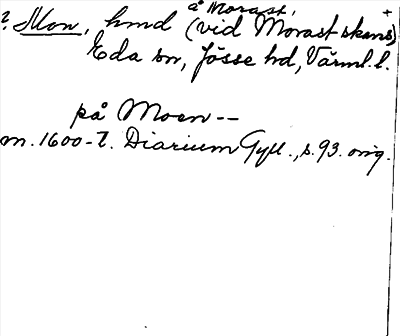 å Morast.
? Mon, hmd (vid Morast skans)
Eda sn, Jösse hd, Värml. l.
på Moen --
m. 1600-t. Diarium Gyll., s. 93. orig.